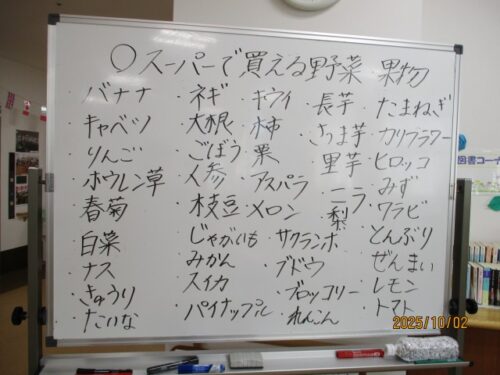 〇スーパーで買える野菜 果物
・バナナ
・キャベツ
・りんご
・ホウレン草
・春菊
・白菜
・ナス
・きゅうり
・たいな
・ネギ
・大根
・ごぼう
・人参
・枝豆
・じゃがいも
・みかん
・スイカ
・パイナップル
・キウイ
・柿
・栗
・アスパラ
・メロン
・サクランボ
・ブドウ
・ブロッコリー
・れんこん
・長芋
・さつま芋
・里芋
・ニラ
・梨
・たまねぎ
・カリフラワー
・ヒロッコ
・みず
・ワラビ
・とんぶり
・ぜんまい
・レモン
・トマト
図書コー
2025/10/02